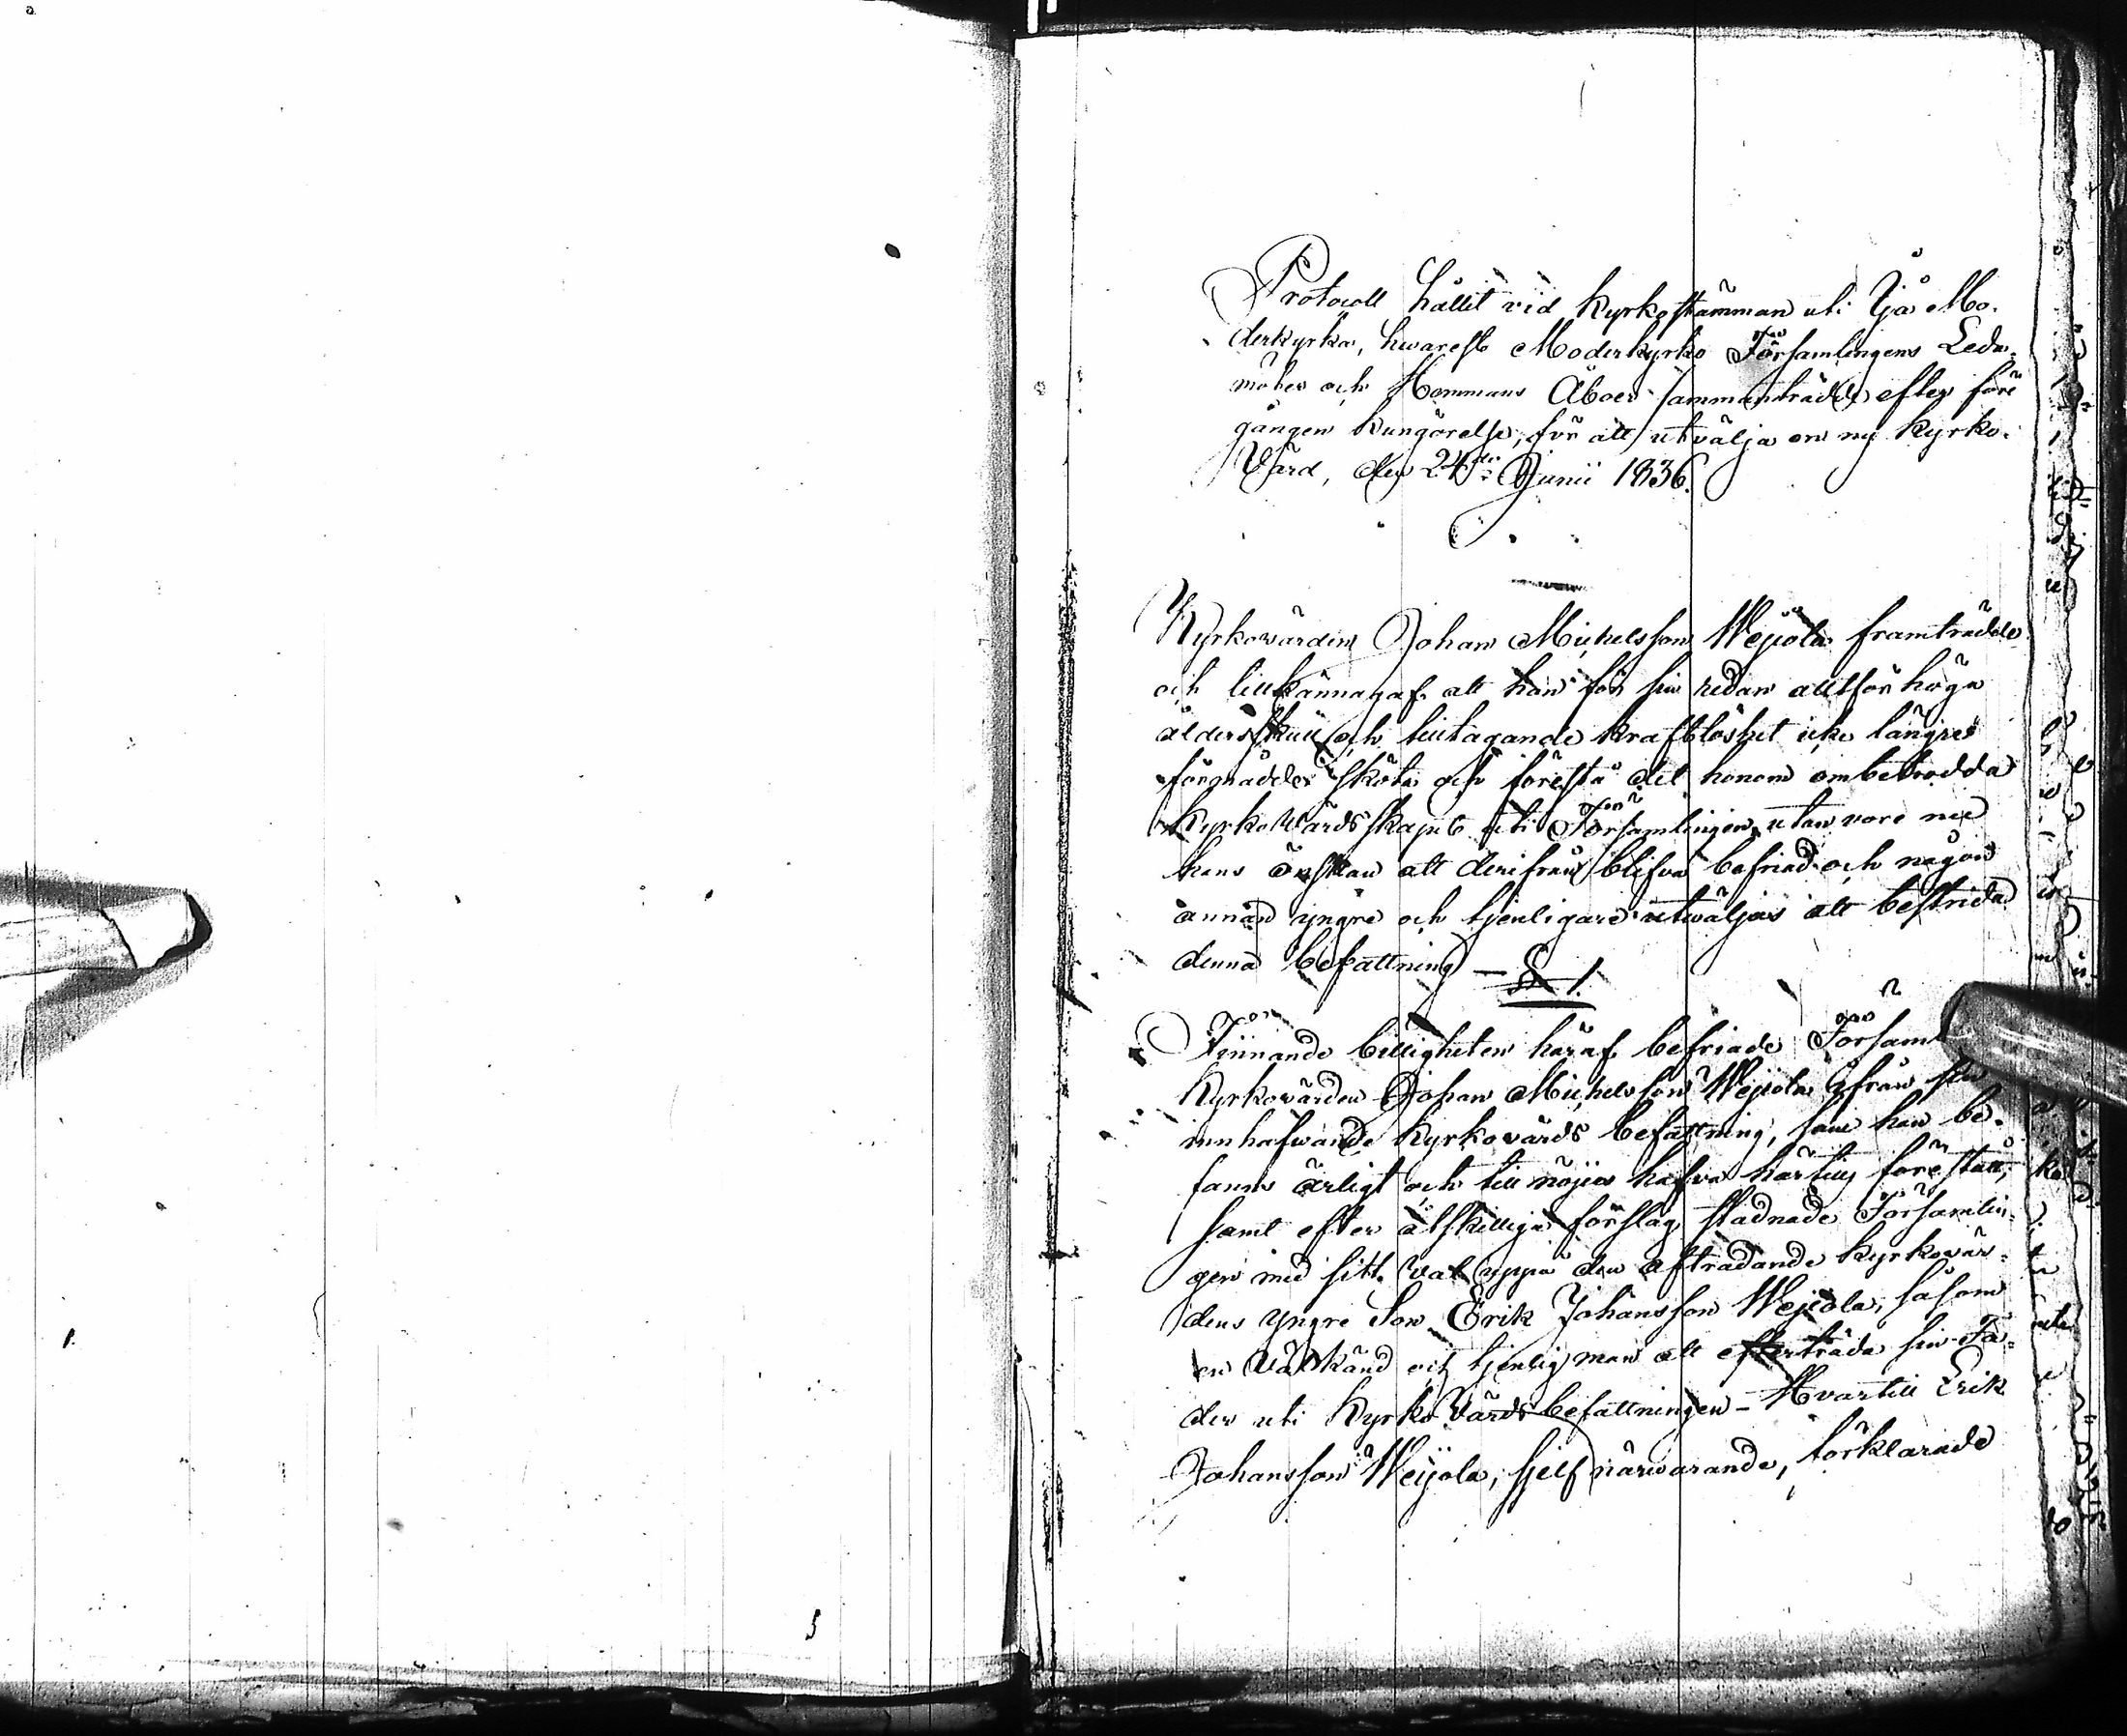 Protocoll hållit vid Kyrkostämman uti Ijå Mo-
derkyrka, hwarest Moderkyrko Församlingens Leda-
möter och Hemmans Åboer sammanträdde efter före
gången kungörelse, för att utvälja en ny Kyrko-
Värd, den 24de Junii 1836.
Kyrkovärden Johan Michelsson Weijola framträdde
och tillkännagaf att han för sin redan alltför höga
ålders skull och tilltagande kraftlöshet icke längre
förmådde sköta och förestå det honom ombetrodda
KyrkoVärdsskapet uti Församlingen, utan vore nu
hans önskan att derifrån blifva befriad och någon
annan yngre och tjenligare utväljas att bestrida
denna befattning — § 1.
Finnande billigheten häraf befriade Församl
Kyrkovärden Johan Michelsson Weijola ifrån sin
innhafwande Kyrkovärds befattning, som han be-
fanns ärligt och till nöjes hafva härtills förestått,
samt efter åtskilliga förslag stadnade Församlin-
gen med sitt val uppå den afträdande Kyrkovär-
dens yngre Son Erik Johansson Weijola, såsom
en Välkänd och tjenlig man att efterträda sin Fa-
der uti KyrkoVärdsbefattningen – Hvartill Erik
Johansson Weijola, sjelf närvarande, förklarade